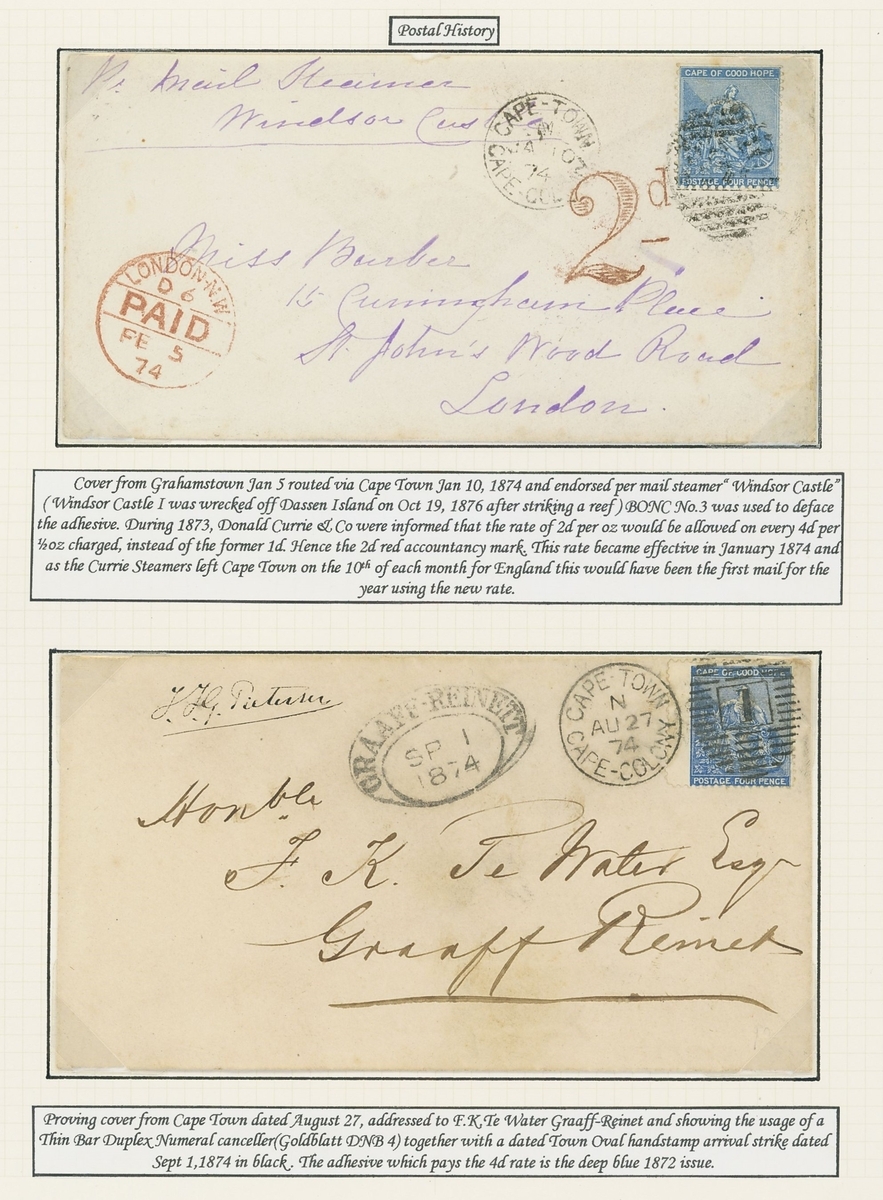 Postal History
Pr Mail Steamer
Windsor Castle
CAPE-TOWN
JA 10
74
CAPE-COL
CAPE OF GOOD HOPE
POSTAGE FOUR PENCE
2d
LONDON-N.W
D 6
PAID
FE 5
74
Miss Barber
15 Cuningham Place
St John's Wood Road
London.
Cover from Grahamstown Jan 5 routed via Cape Town Jan 10, 1874 and endorsed per mail steamer" Windsor Castle"
( Windsor Castle I was wrecked off Dassen Island on Oct 19, 1876 after striking a reef) BONC No.3 was used to deface
the adhesive. During 1873, Donald Currie & Co were informed that the rate of 2d per oz would be allowed on every 4d per
½oz charged, instead of the former 1d. Hence the 2d red accountancy mark. This rate became effective in January 1874 and
as the Currie Steamers left Cape Town on the 10th of each month for England this would have been the first mail for the
year using the new rate.
GRAAFF-REINEIT
SP 1
1874
CAPE-TOWN
N
AU 27
74
CAPE-COLONY
CAPE OF GOOD HOPE
1
POSTAGE FOUR PENCE
Honble
F. K. Te Water Esqr
Graaff Reinet
Proving cover from Cape Town dated August 27, addressed to F.K.Te Water Graaff-Reinet and showing the usage of a
Thin Bar Duplex Numeral canceller(Goldblatt DNB 4) together with a dated Town Oval handstamp arrival strike dated
Sept 1,1874 in black. The adhesive which pays the 4d rate is the deep blue 1872 issue.